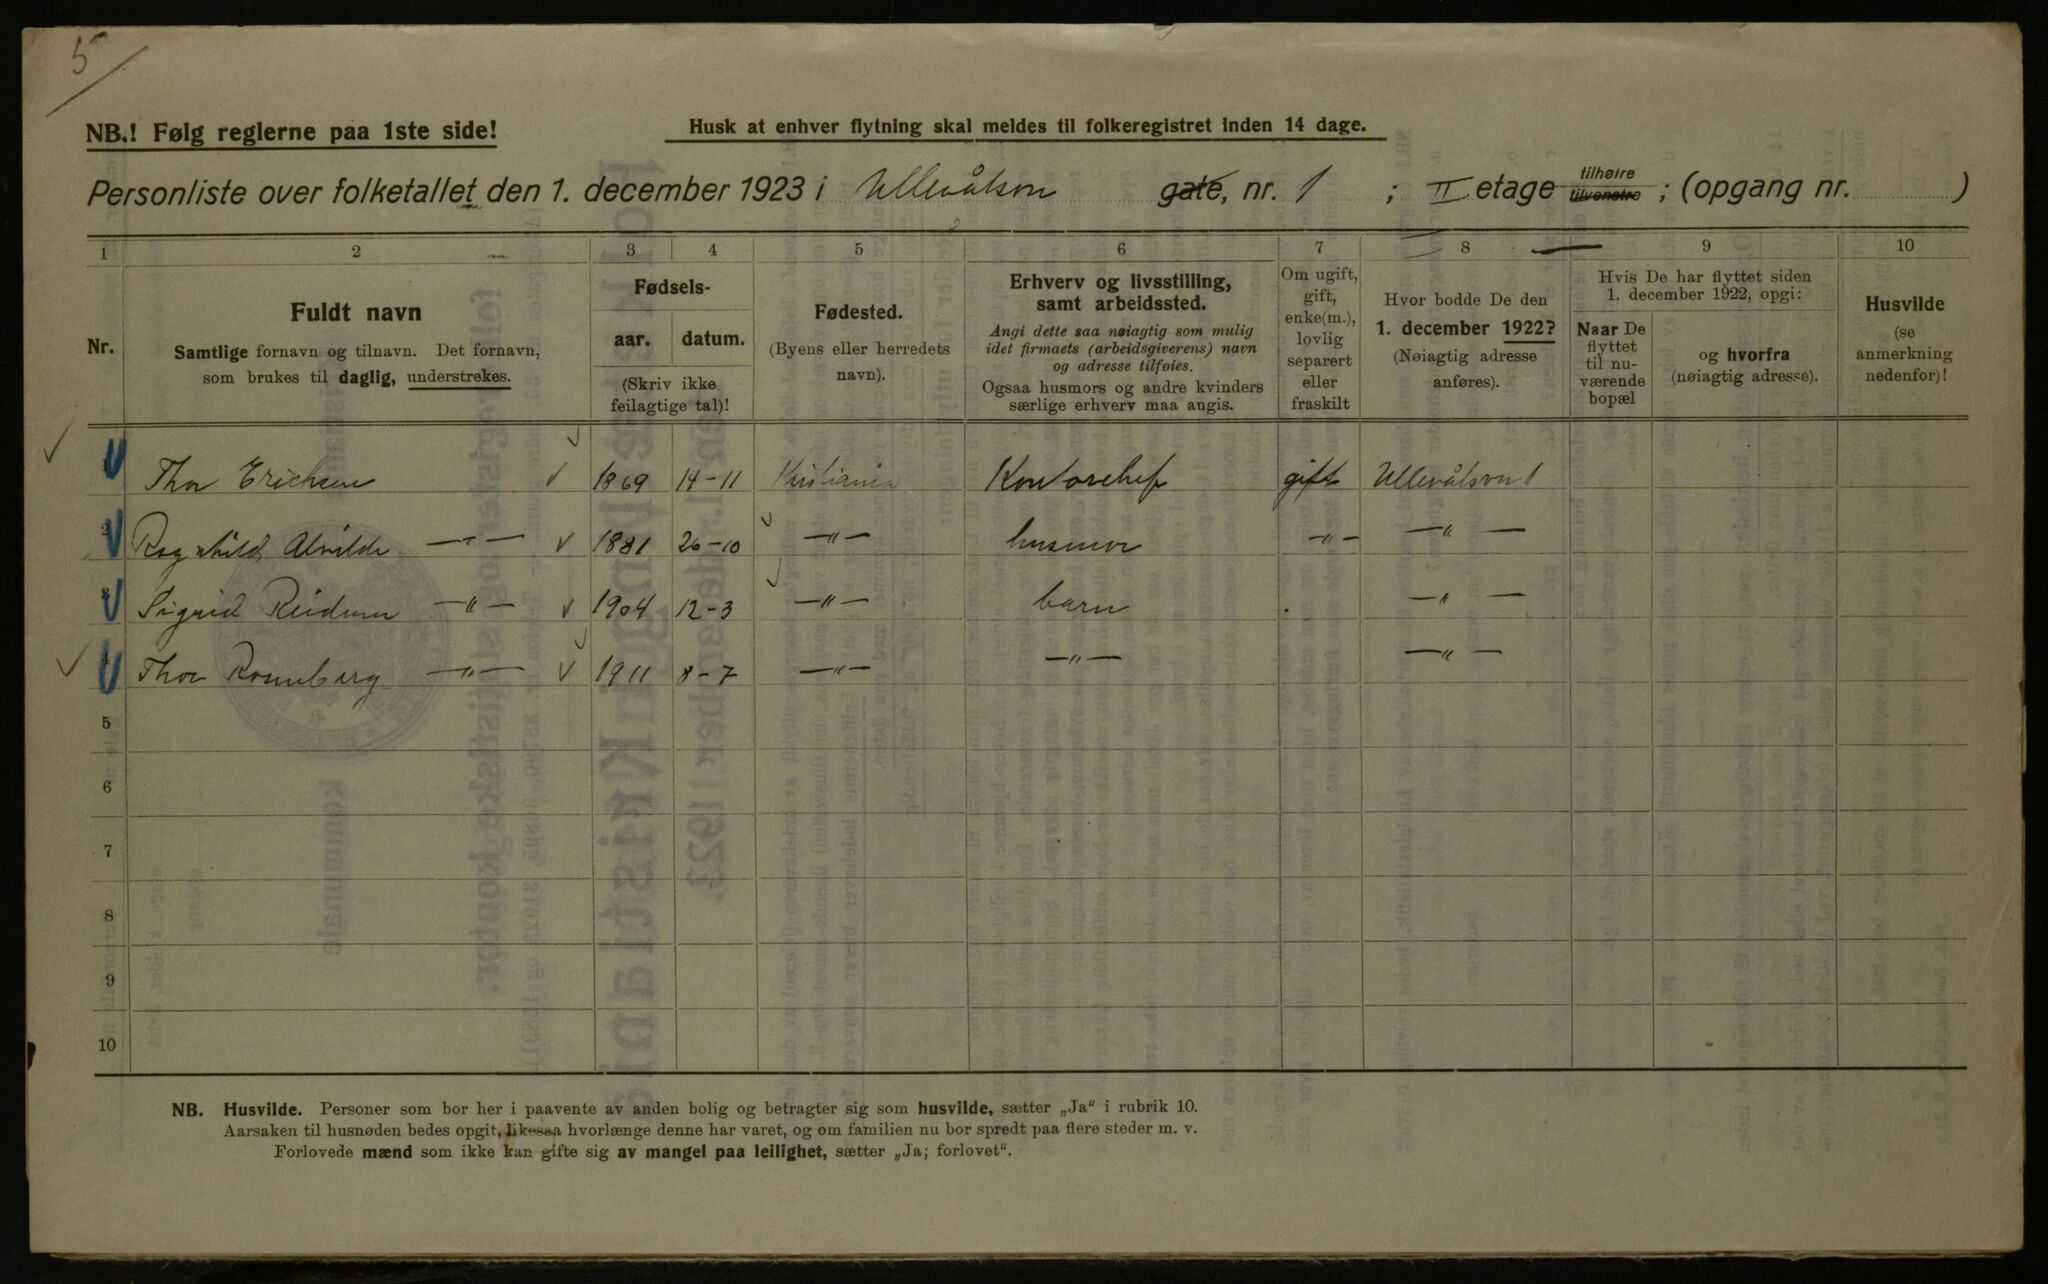 5
NB.! Følg reglerne paa 1ste side!
Husk at enhver flytning skal meldes til folkeregistret inden 14 dage.
Personliste over folketallet den 1. december 1923 i Ullevålsvn gate, nr. 1 ; II etage tilhøire tilvenstre ; (opgang nr. )
1 2 3 4 5 6 7 8 9 10
Nr.
Fuldt navn
Samtlige fornavn og tilnavn. Det fornavn,
som brukes til daglig, understrekes.
Fødsels-
aar. datum.
(Skriv ikke
feilagtige tal)!
Fødested.
(Byens eller herredets
navn).
Erhverv og livsstilling,
samt arbeidssted.
Angi dette saa nøiagtig som mulig
idet firmaets (arbeidsgiverens) navn
og adresse tilføies.
Ogsaa husmors og andre kvinders
særlige erhverv maa angis.
Om ugift,
gift,
enke(m.),
lovlig
separert
eller
fraskilt
Hvor bodde De den
1. december 1922?
(Nøiagtig adresse
anføres).
Hvis De har flyttet siden
1. december 1922, opgi:
Naar De
flyttet
til nu-
værende
bopæl
og hvorfra
(nøiagtig adresse).
Husvilde
(se
anmerkning
nedenfor)!
1 Thor Erichsen 1869 14-11 Kristiania Kontorchef gift Ullevålsvn 1
2 Ragnhild Alvilde —"— 1881 26-10 —"— husmor —"— —"—
3 Sigrid Reidunn —"— 1904 12-3 —"— barn . —"—
4 Thor Rosenberg —"— 1911 8-7 —"— —"— —"—
5
6
7
8
9
10
NB. Husvilde. Personer som bor her i paavente av anden bolig og betragter sig som husvilde, sætter „Ja“ i rubrik 10.
Aarsaken til husnøden bedes opgit, likesaa hvorlænge denne har varet, og om familien nu bor spredt paa flere steder m. v.
Forlovede mænd som ikke kan gifte sig av mangel paa leilighet, sætter „Ja; forlovet“.